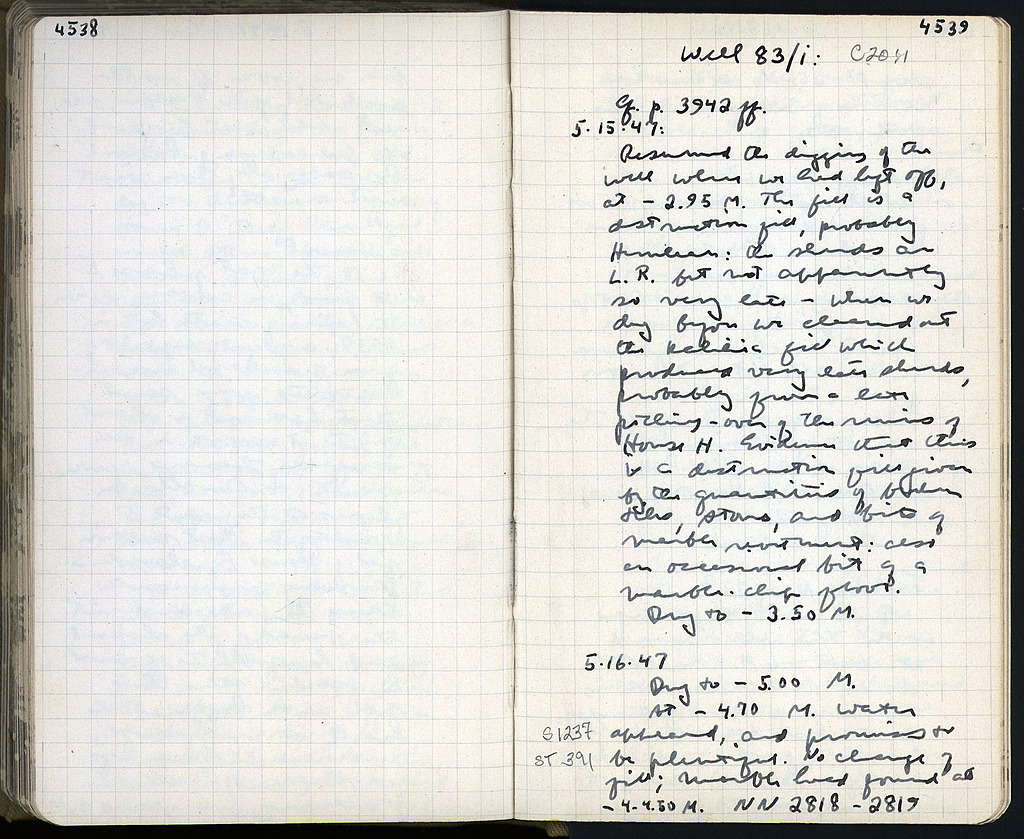 4538
4539
Well 83/1: C20:1
Cf. p. 3942 ff.
5.15.47:
Resumed the digging of the
well where we had left off,
at - 2.95 M. The fill is a
destruction fill, probably
Herulean: the sherds are
L. R. but not apparently
so very late - when we
dug before we cleaned out
the fill which
produced very late sherds,
probably from a late
pitting-over of the ruins of
House H. Evidence that this
is a destruction fill given
by the quantities of broken
tiles, stones, and bits of
marble revetment: also
an occasional bit of a
marble-chip floor.
Dug to - 3.50 M.
5.16.47
Dug to - 5.00 M.
At - 4.70 M. water
S1237 appeared, and promises to
ST 391 be plentiful. No change of
fill; marble head found at
- 4-4.50 M. NN 2818 - 2819